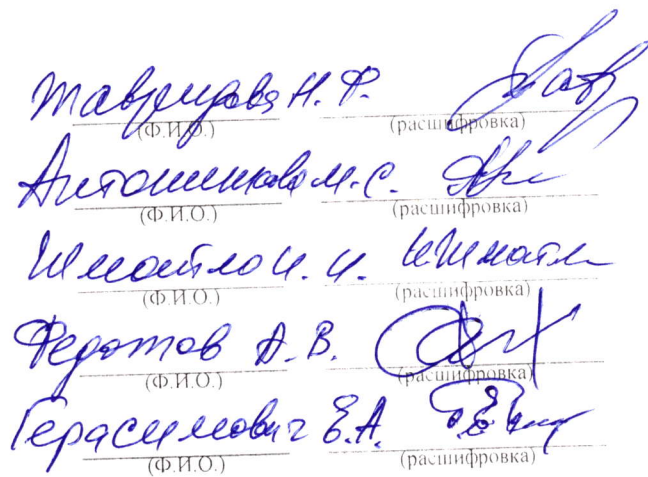 Тавридова Н. Ф.
(Ф.И.О.) (расшифровка)
Антошникова М. С.
(Ф.И.О.) (расшифровка)
Шмайло И. И.
(Ф.И.О.) (расшифровка)
Федотов А. В.
(Ф.И.О.) (расшифровка)
Герасимович Е.А.
(Ф.И.О.) (расшифровка)